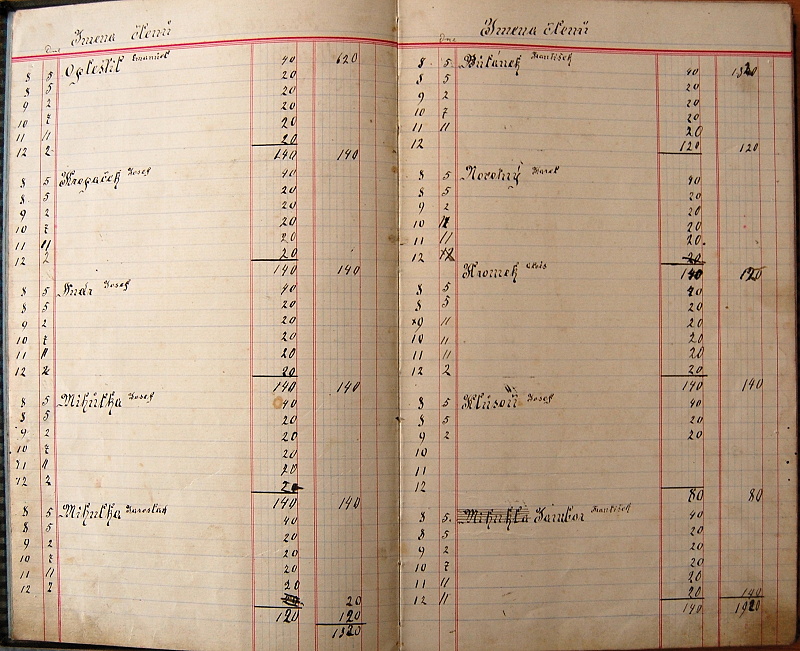 Jména členů
Dne
620
8 5 Ogleštil Emanuel 40
8 5 20
9 2 20
10 7 20
11 11 20
12 2 20
140 140
8 5 Kropáček Josef 40
8 5 20
9 2 20
10 7 20
11 11 20
12 2 20
140 140
8 5 Josef 40
8 5 20
9 2 20
10 7 20
11 11 20
12 2 20
140 140
8 5 Mihulka Josef 40
8 5 20
9 2 20
10 7 20
11 11 20
12 2 20
140 140
8 5 Mihulka Jaroslav 40
8 5 20
9 2 20
10 7 20
11 11 20
12 2
20
120 120
1320
Jména členů
Dne
8 5 Bulánek František 40 1320
8 5 20
9 2 20
10 7 20
11 11 20
12
120 120
8 5 Novotný Karel 40
8 5 20
9 2 20
10 20
11 11 20
12 20
140 120
Kromek Alois
8 5 40
8 5 20
11 20
10 11 20
11 11 20
12 2 20
140 140
8 5 Klúsoň Josef 40
8 5 20
9 2 20
10
11
12
80 80
8 5 Mihulka Jambor František 40
8 5 20
9 2 20
10 7 20
11 11 20
12 11 20 140
140 1920